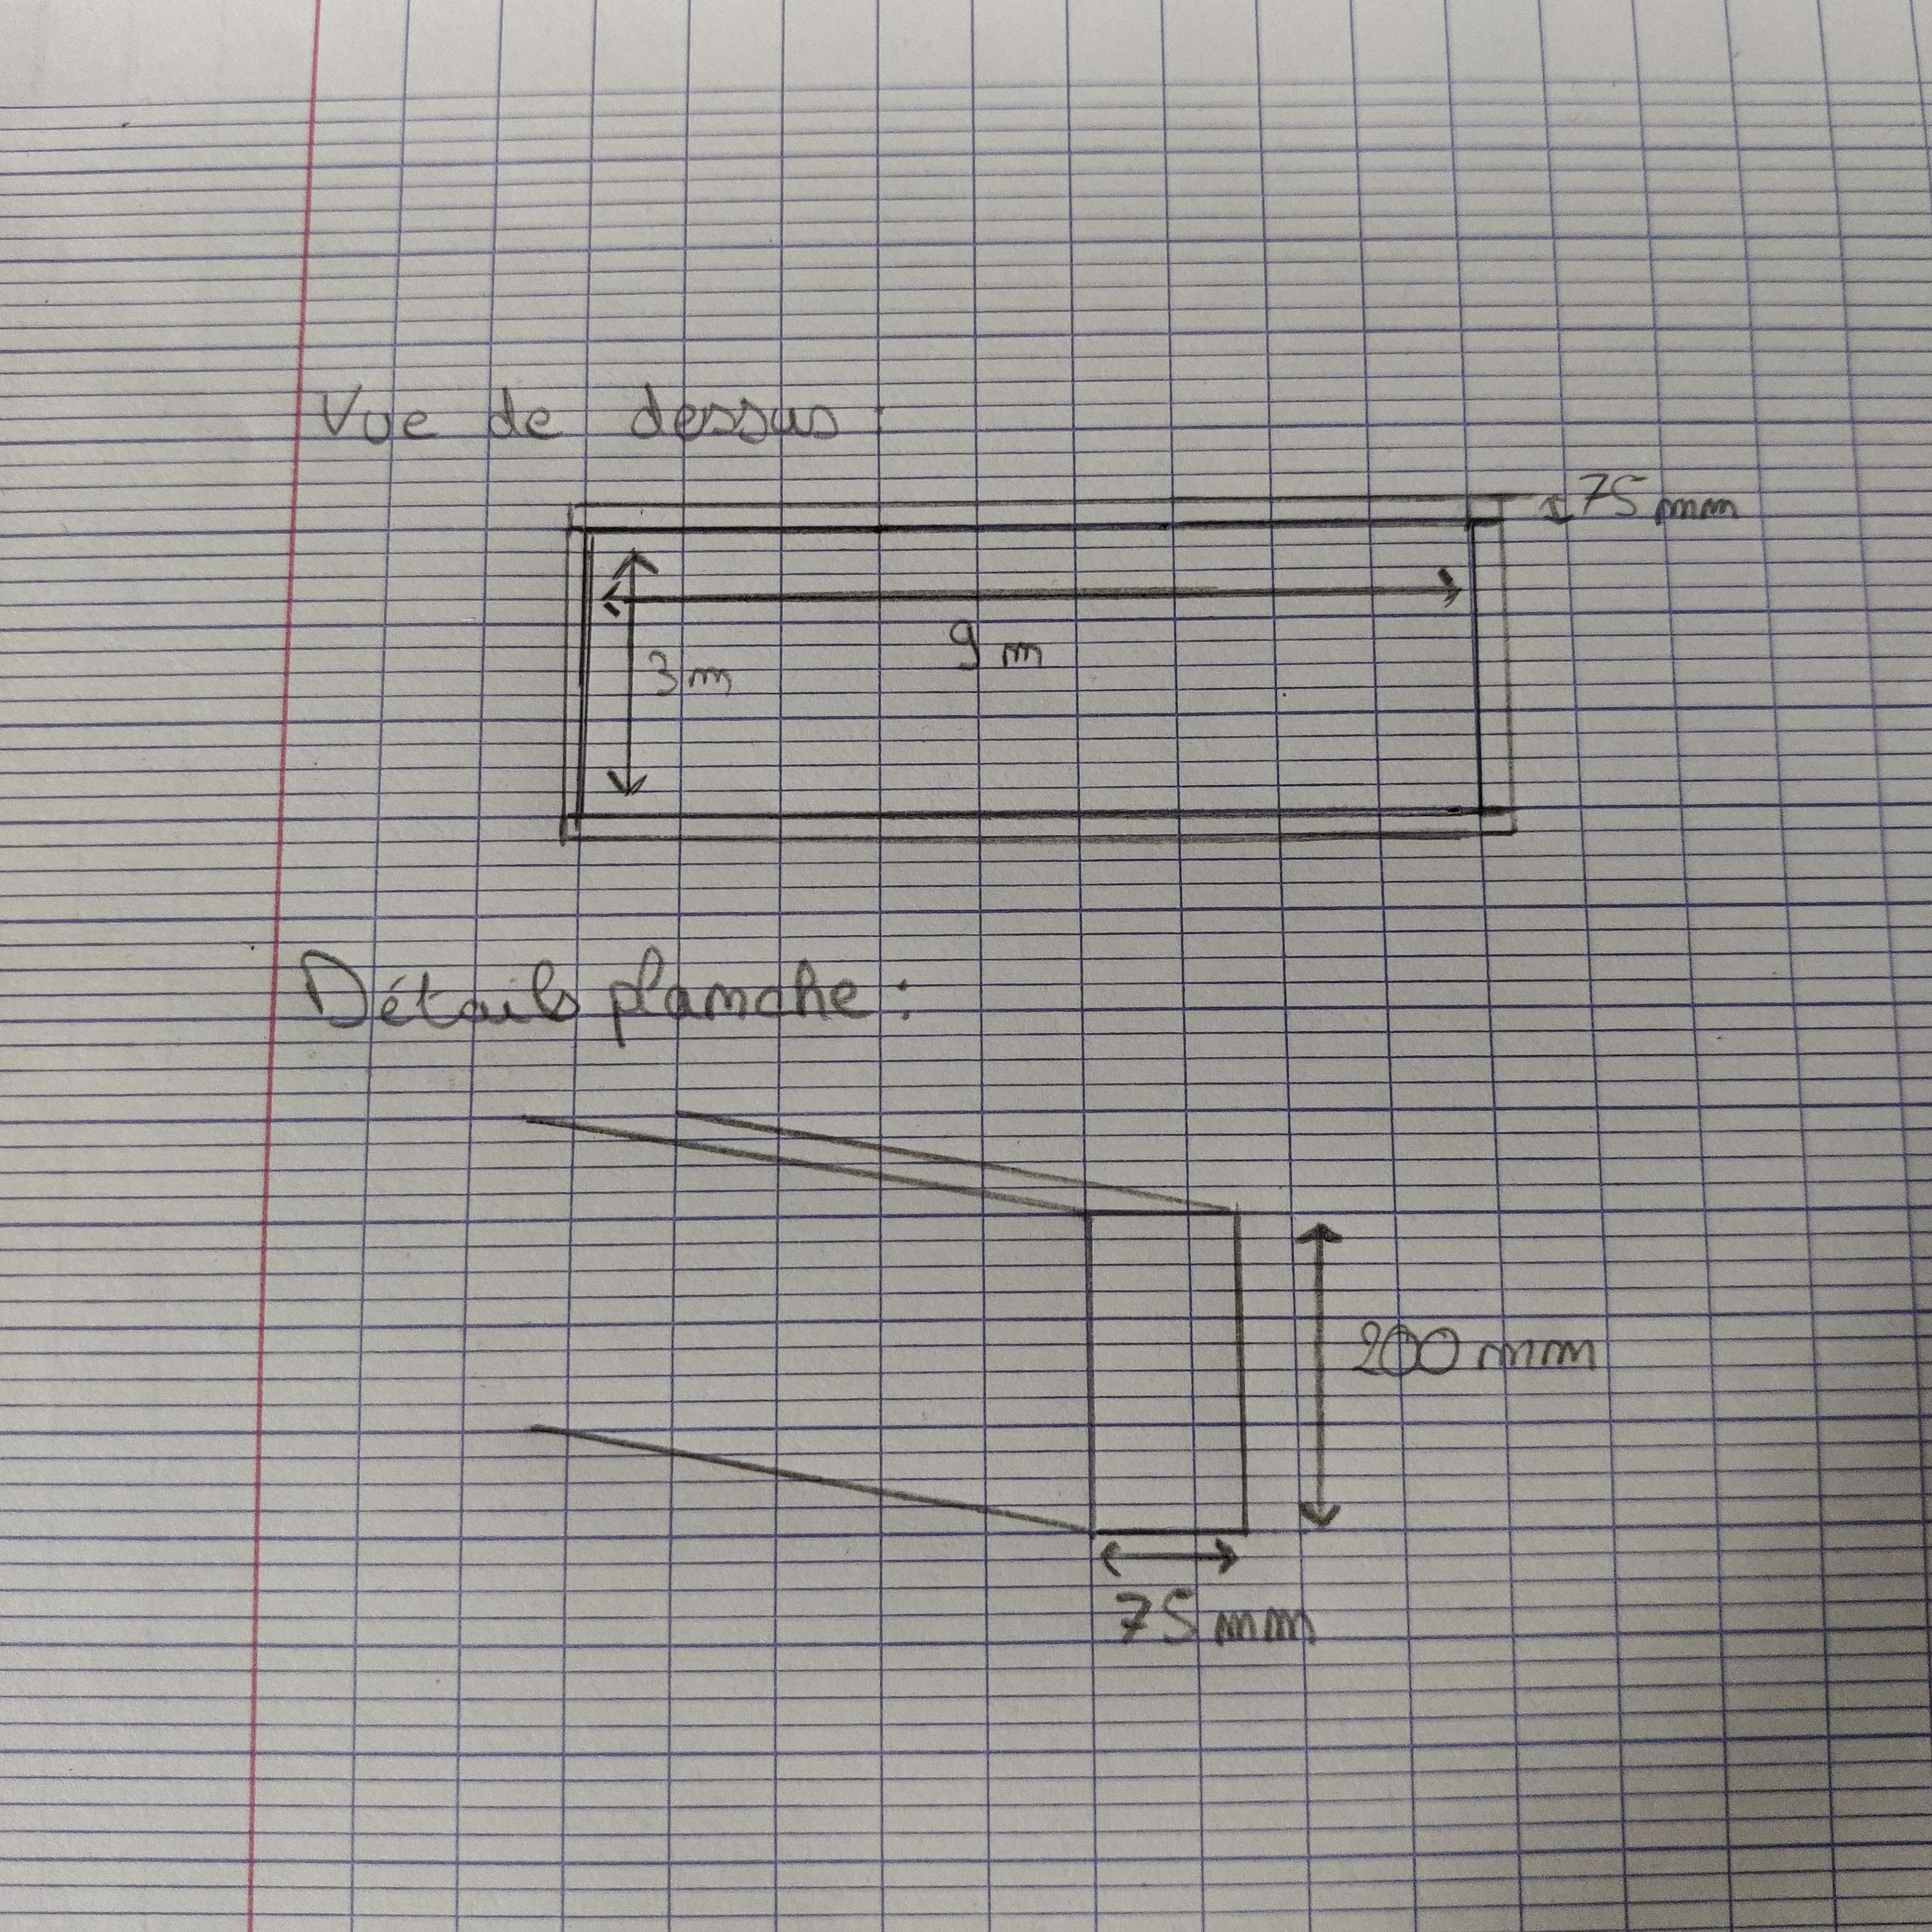 Vue de dessus :
75 mm
9 m
3 m
Détails planche :
200 mm
75 mm